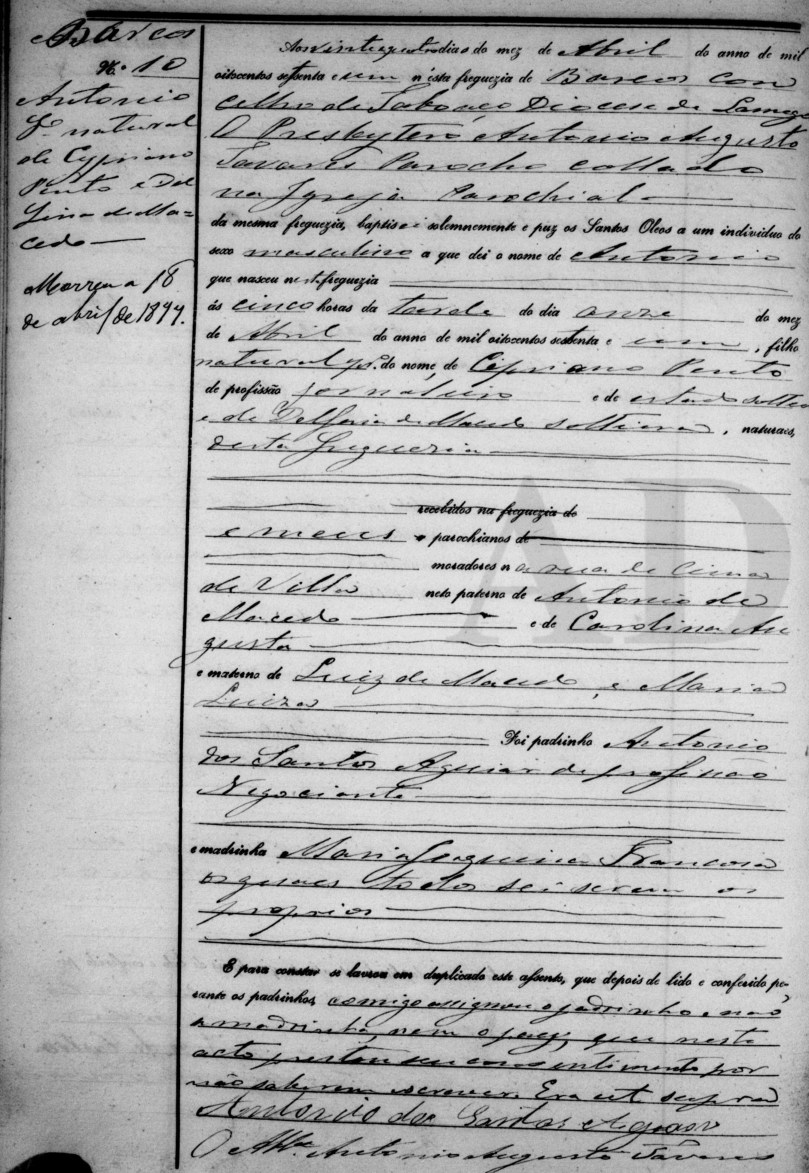 Barcos
N.º 10
Antonio
f.º natural
de Cypriano
Pinto e Del
fina de Ma=
cedo
Morreu a 18
de abril de
Aos vinte e quatro dias do mez de Abril do anno de mil
oitocentos sessenta e um n'esta freguezia de Barcos con
celho de Taboaço Diocese de Lamego
O Presbytero Antonio Augusto
Tavares Parocho collado
na Igreja Parochial
da mesma freguezia, baptisei solemnemente e puz os Santos Oleos a um individuo do
sexo masculino a que dei o nome de Antonio
que nasceu nesta freguezia
ás cinco horas da tarde do dia onze do mez
de Abril do anno de mil oitocentos sessenta e um, filho
natural do nome, de Cipriano Pinto
de profissão jornaleiro e de estado solteiro
e de Delfina de Macedo solteira, naturaes,
desta freguezia
recebidos na freguezia de
e meus parochianos de
moradores na rua de Cima
de Villa neto paterno de Antonio de
Macedo e de Carolina Au
gusta
e materno de Luiz de Macedo, e Maria
Luiza
Foi padrinho Antonio
dos Santos Aguiar de profissão
Negociante
e madrinha Maria Francisca
os quaes todos sei serem os
proprios
E para constar se lavrou em duplicado este assento, que depois de lido e conferido pe-
rante os padrinhos, comigo assignou o padrinho e não
a madrinha, nem o pay, que neste
acto prestou seu consentimento por
não saberem escrever. Era ut supra
Antonio dos Santos Aguiar
O Abb.e Antonio Augusto Tavares
AD